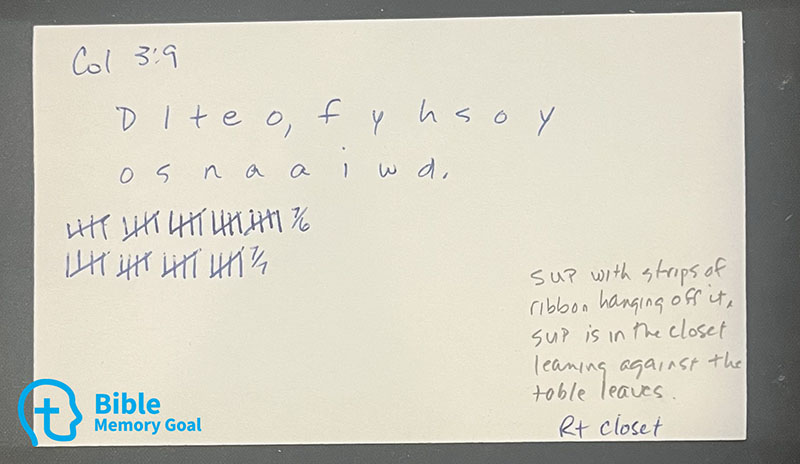 Col 3:9
D l t e o, f y h s o y
o s n a a i w d.
7/6
7/7
SUP with strips of
ribbon hanging off it.
SUP is in the closet
leaning against the
table leaves.
Rt closet
Bible
Memory Goal